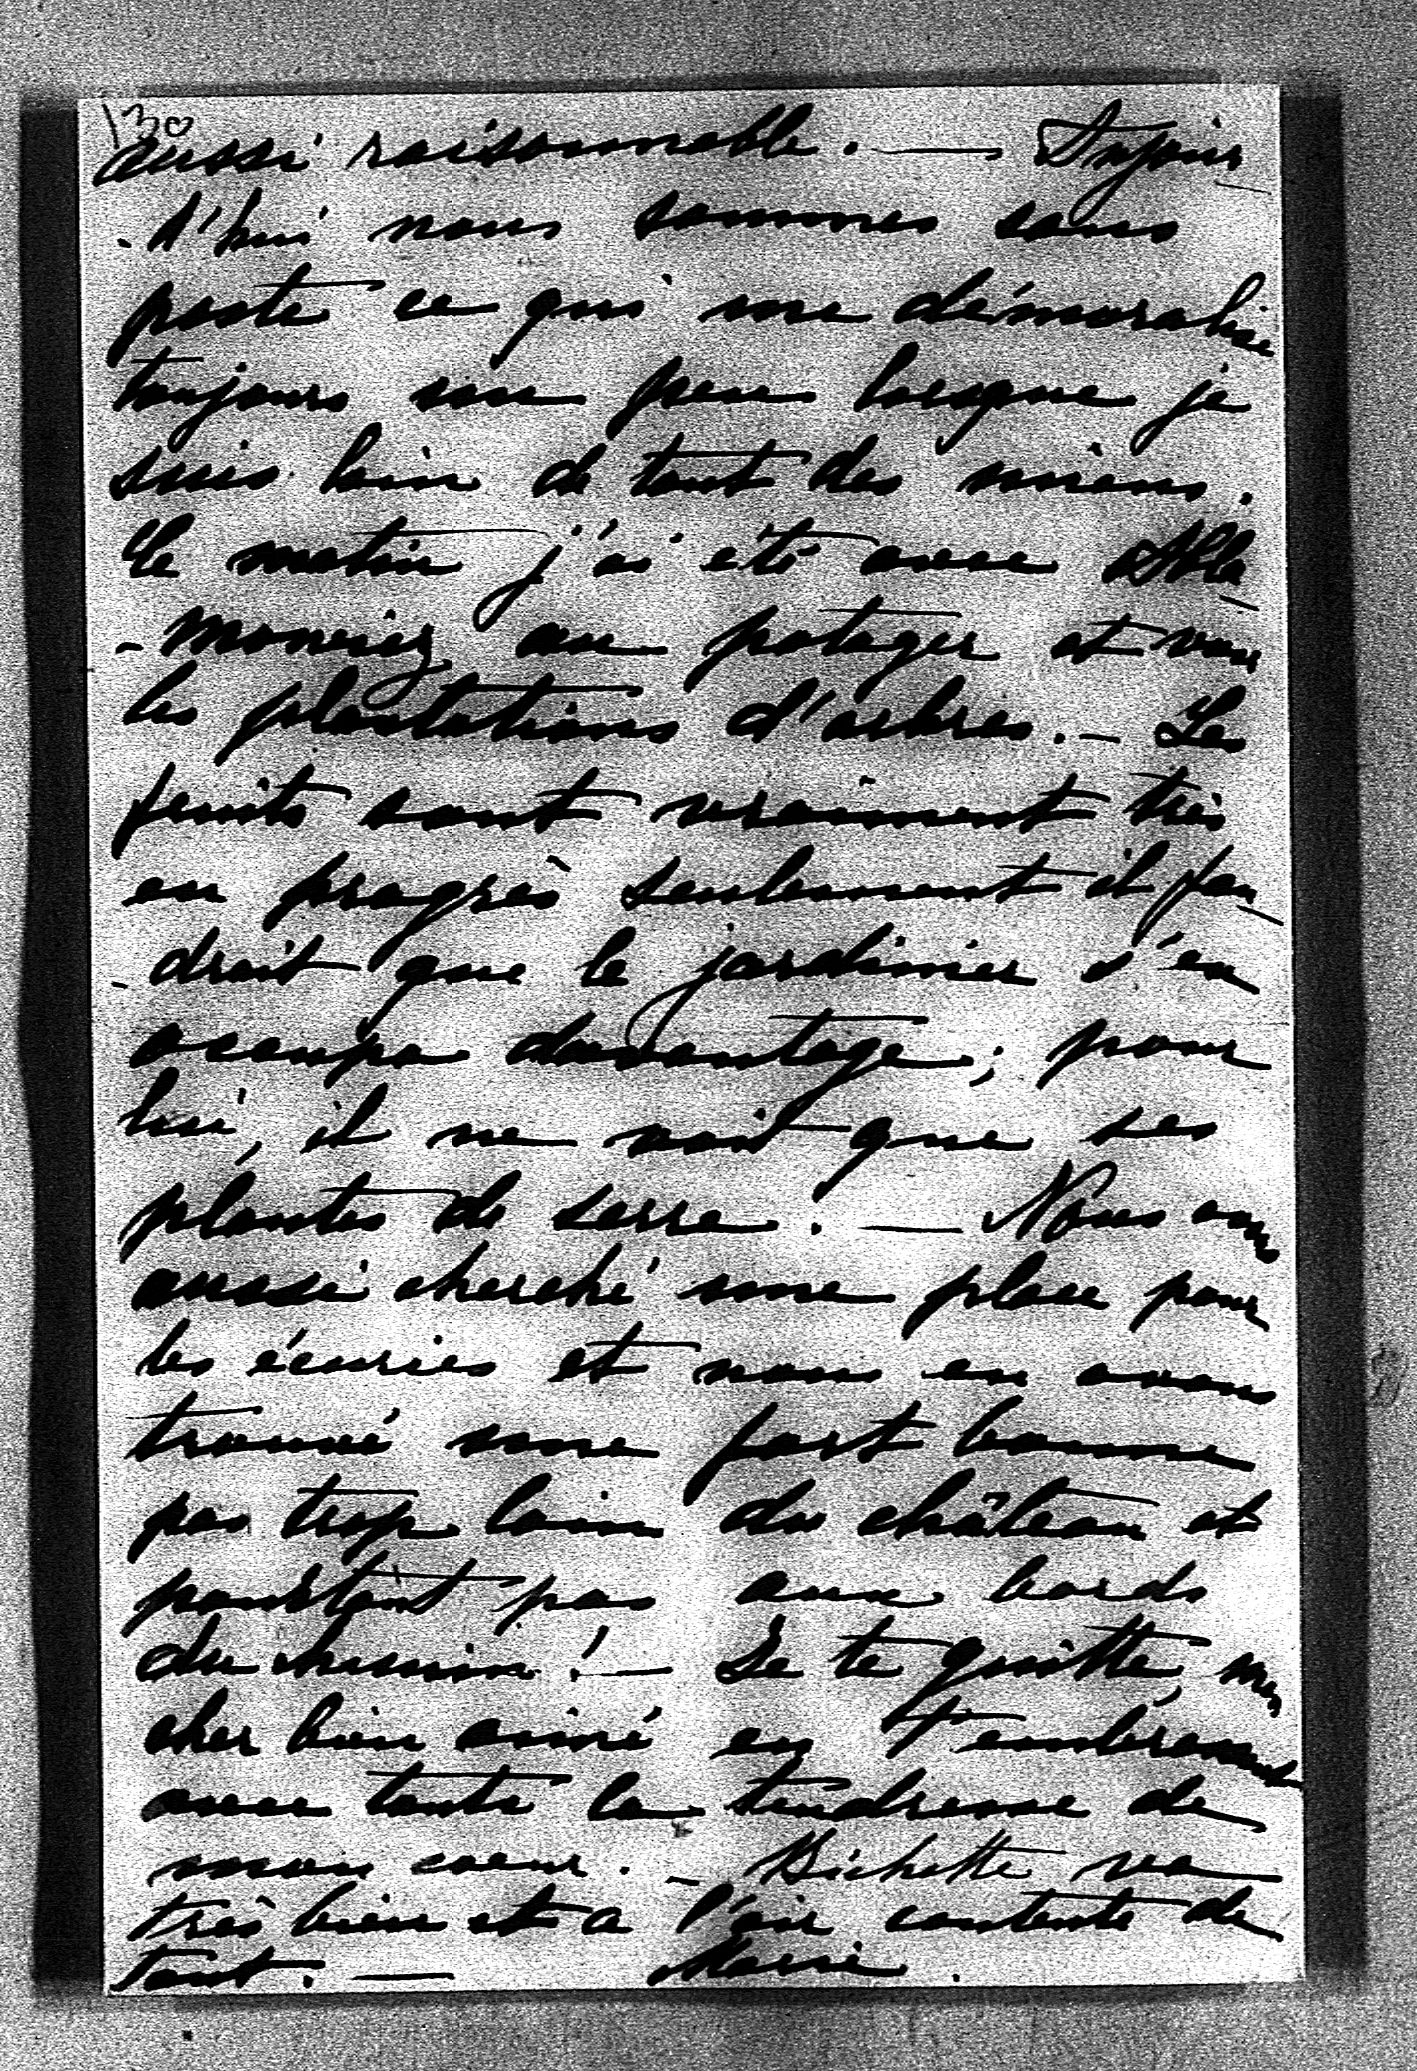 130
aussi raisonnable. — Aujour
-d'hui nous sommes sans
poste ce qui me démoralise
toujours un peu lorsque je
suis loin de tout des miens.
Le matin j'ai été avec
au potager et vu
les plantations d'arbres. — Les
fruits sont vraiment très
en progrès seulement il fau-
-drait que le jardinier s'en
occupa davantage; pour
lui, il ne voit que ses
plantes de serre. — Nous avons
aussi cherché une place pour
les écuries et nous en avons
trouvé une fort bonne
pas trop loin du château et
pourtant pas aux bords
du chemin! — Je te quitte mon
cher bien aimé en t'embrassant
avec toute la tendresse de
mon coeur. — Bichette va
très bien et a l'air contente de
tout. — Marie.